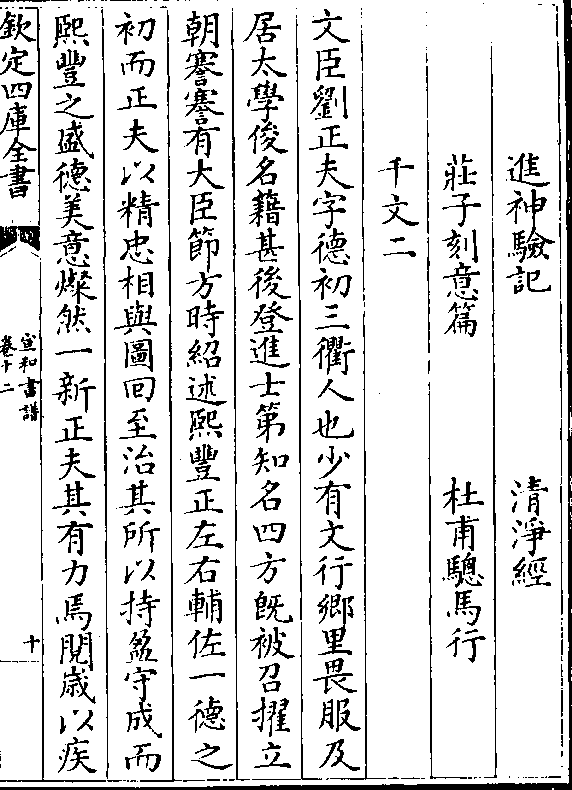 進神驗記　清淨經
莊子刻意篇　杜甫驄馬行
千文二
文臣劉正夫字德初三衢人也少有文行鄉里畏服及
居太學俊名籍甚後登進士第知名四方既被召擢立
朝謇謇有大臣節方時紹述熙豐正左右輔佐一德之
初而正夫以精忠相與圖回至治其所以持盈守成而
熙豐之盛德美意燦然一新正夫其有力焉閱歲以疾
欽定四庫全書
宣和書譜
卷十二
十